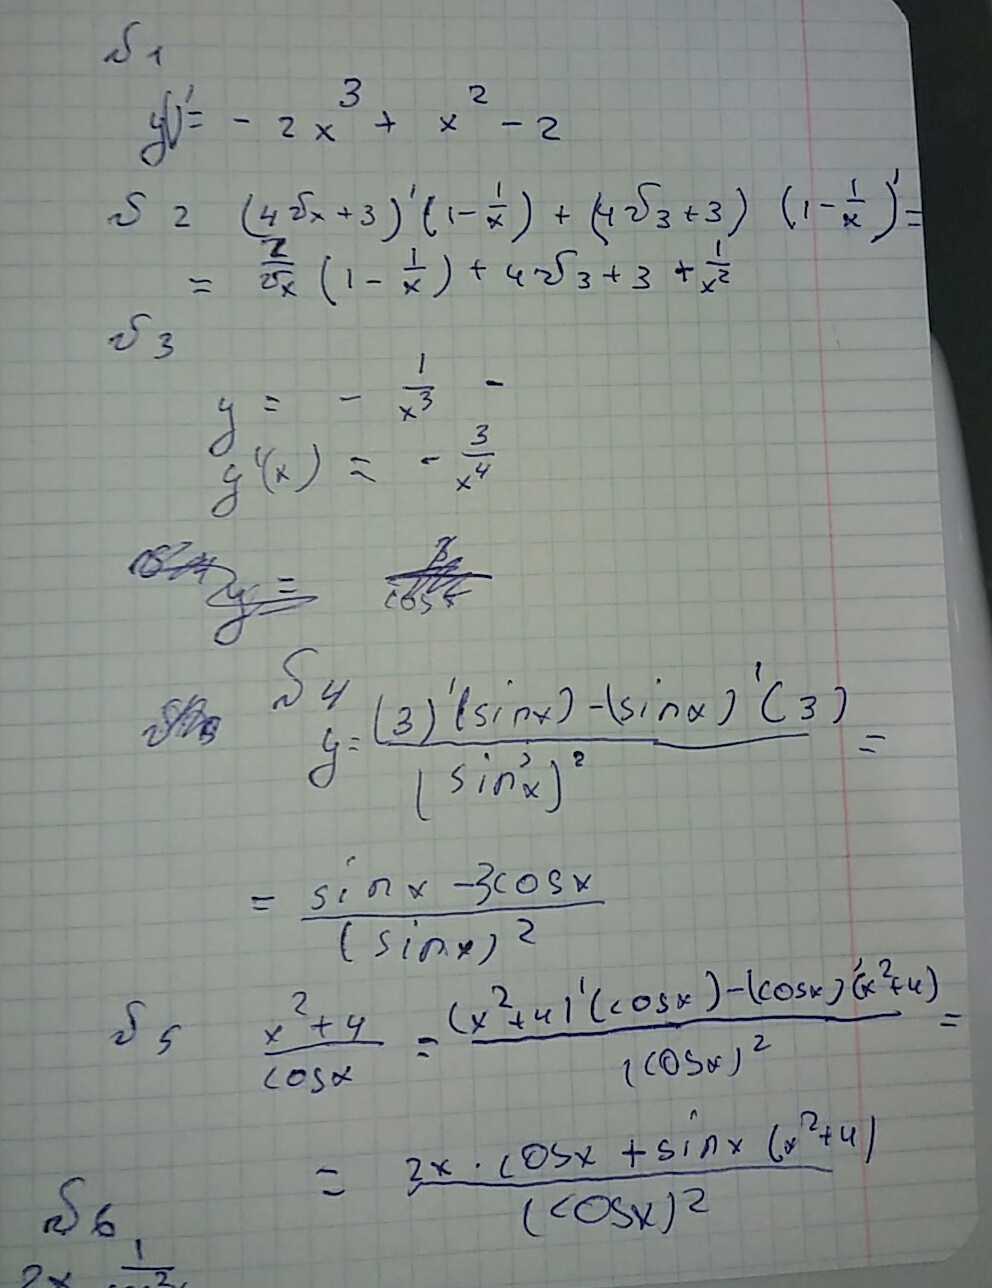 √1
y()' = - 2x³ + x² - 2
√2 (4√x + 3)' (1 - 1/x) + (4√3 + 3) (1 - 1/x)' =
= 2/√x (1 - 1/x) + 4√3 + 3 + 1/x²
√3
y = - 1/x³ -
y'(x) = - 3/x⁴
y =
√4
y = (3)' (sinx) - (sinx)' (3) / (sinx)² =
= sinx - 3cosx / (sinx)²
√5 x² + 4 / cosx = (x² + 4)' (cosx) - (cosx)' (x² + 4) / (cosx)² =
= 2x · cosx + sinx (x² + 4) / (cosx)²
√6
2x 1/